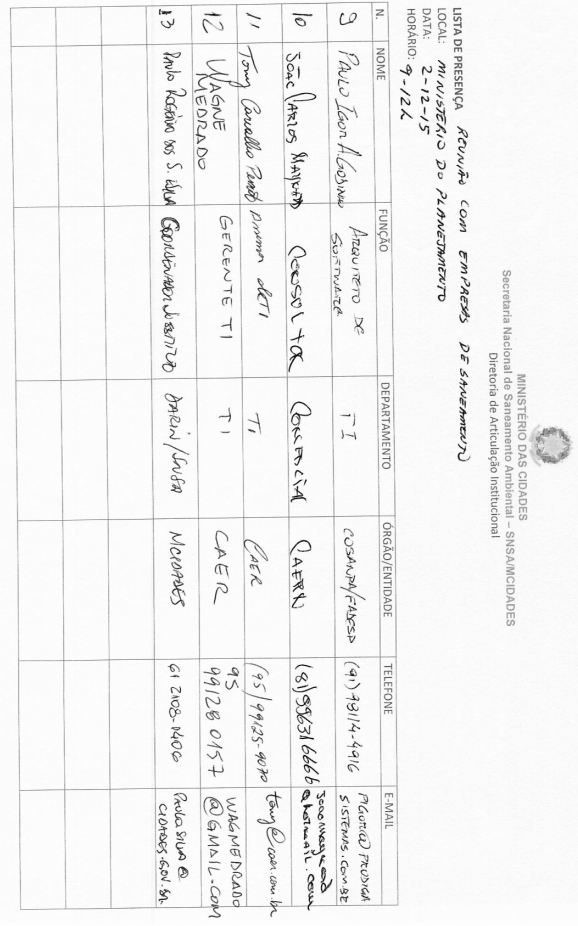 MINISTÉRIO DAS CIDADES
Secretaria Nacional de Saneamento Ambiental – SNSA/MCIDADES
Diretoria de Articulação Institucional
LISTA DE PRESENÇA REUNIÃO COM EMPRESAS DE SANEAMENTO
LOCAL: MINISTÉRIO DO PLANEJAMENTO
DATA: 2-12-15
HORÁRIO: 9-12h
N. NOME FUNÇÃO DEPARTAMENTO ÓRGÃO/ENTIDADE TELEFONE E-MAIL
9 PAULO IGOR A. GODINHO ARQUITETO DE SOFTWARE TI COSANPA/FADESP (91) 98114-4916 SISTEMAS.COM.BR
10 JOÃO CARLOS COMERCIAL CAERN (81) 996316666 @hotmail.com
11 Tony Carvalho TI CAER (95) 99125-9070 tony@caer.com.br
12 WAGNE MEDRADO GERENTE TI TI CAER 95 991280157 WAGMEDRADO @GMAIL.COM
13 PAULO ROGÉRIO DOS S. SILVA DARIN/SNSA MCIDADES 61 2108-1406 PAULO.SILVA@ CIDADES.GOV.BR